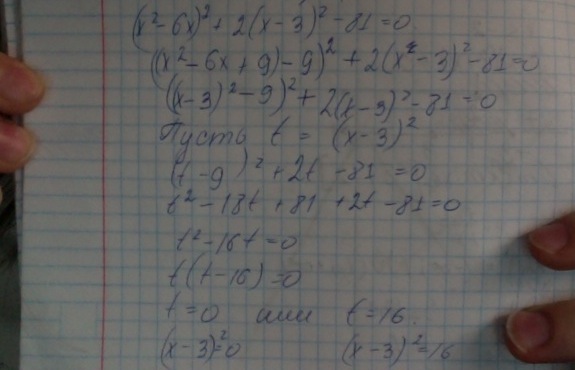 (x²-6x)²+2(x-3)²-81=0
((x²-6x+9)-9)²+2(x-3)²-81=0
((x-3)²-9)²+2(x-3)²-81=0
Пусть t = (x-3)²
(t-9)²+2t-81=0
t²-18t+81+2t-81=0
t²-16t=0
t(t-16)=0
t=0 или t=16.
(x-3)²=0 (x-3)²=16